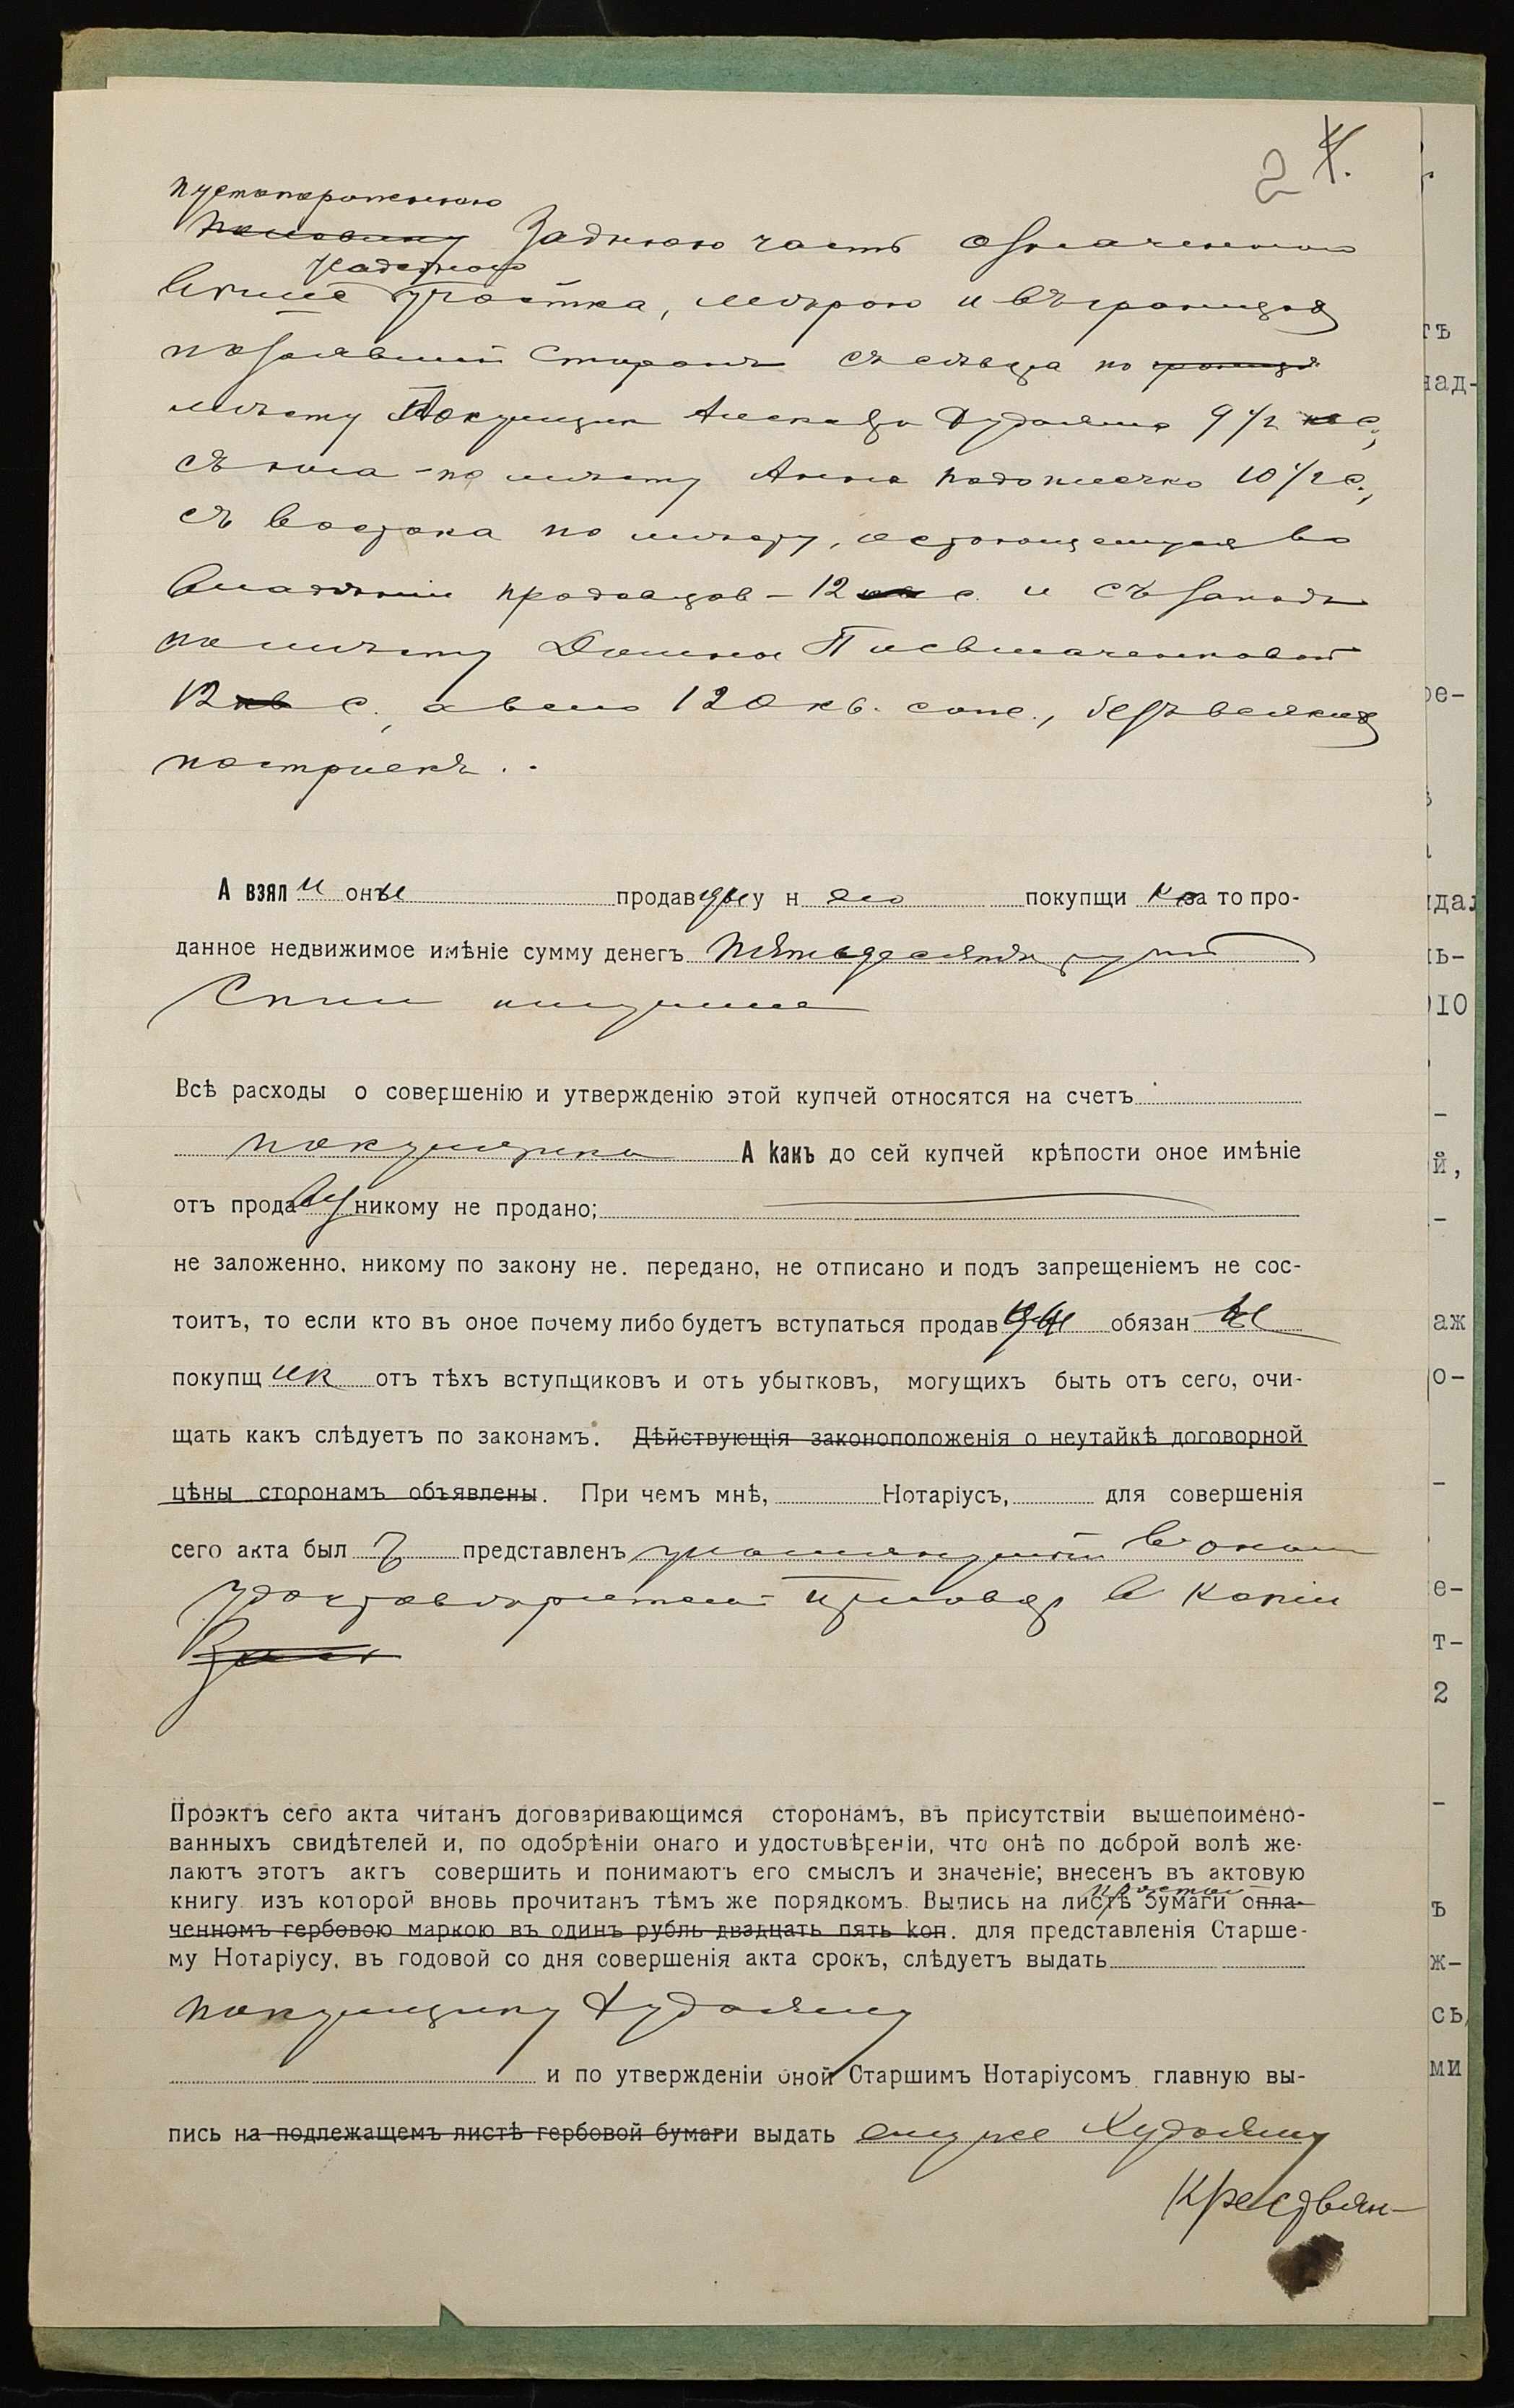 2 4.
пустопорожнюю
половину заднюю часть означеннаго
выше участка, мѣрою и въ границахъ
по заявленію сторонъ: съ сѣвера по границѣ
мѣсту покупщика 9 1/2 кв с.,
съ юга - по мѣсту Анны 10 1/2 с.,
съ востока по мѣсту, остающемуся во
владѣніи продавцовъ - 12 кв с. и съ запада
по мѣсту Домны
12 кв с., а всего 120 кв. саж., безъ всякихъ
построекъ.
А взяли онѣ продавцы у него покупщика за то про-
данное недвижимое имѣніе сумму денегъ пятьдесятъ руб
Всѣ расходы о совершенію и утвержденію этой купчей относятся на счетъ
покупщика А какъ до сей купчей крѣпости оное имѣніе
отъ продавц никому не продано;
не заложенно, никому по закону не. передано, не отписано и подъ запрещеніемъ не сос-
тоитъ, то если кто въ оное почему либо будетъ вступаться продавцы обязаны
покупщик отъ тѣхъ вступщиковъ и отъ убытковъ, могущихъ быть отъ сего, очи-
щать какъ слѣдуетъ по законамъ. Дѣйствующія законоположенія о неутайкѣ договорной
цѣны сторонамъ объявлены. При чемъ мнѣ, Нотаріусъ, для совершенія
сего акта былъ представленъ
приговоръ въ копіи
Проэктъ сего акта читанъ договаривающимся сторонамъ, въ присутствіи вышепоимено-
ванныхъ свидѣтелей и, по одобрѣніи онаго и удостовѣреніи, что онѣ по доброй волѣ же-
лаютъ этотъ актъ совершить и понимаютъ его смыслъ и значеніе; внесенъ въ актовую
книгу изъ которой вновь прочитанъ тѣмъ же порядкомъ. Выпись на листѣ простой бумаги опла-
ченномъ гербовою маркою въ одинъ рубль двадцать пять коп. для представленія Старше-
му Нотаріусу, въ годовой со дня совершенія акта срокъ, слѣдуетъ выдать
покупщику Худолѣю
и по утвержденіи оной Старшимъ Нотаріусомъ главную вы-
пись на подлежащемъ листѣ гербовой бумаги выдать ему же Худолѣю
Крестьян-